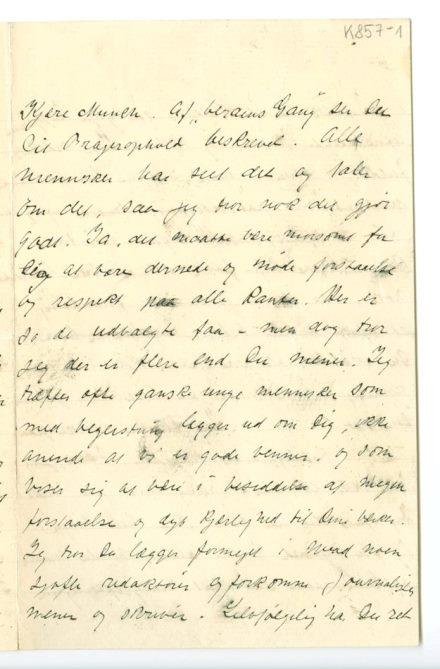 K857-1
Kjære Munch. Af "Verdens Gang" ser Du
Dit Pragerophold beskrevet. Alle
mennesker har seet det og taler
om det, saa jeg tror nok det gjør
godt. Ja, det maatte være morsomt for
Dig at være dernede og møde forstaaelse
og respekt paa alle kanter. Her er
jo de udvalgte faa – men dog tror
jeg der er flere end Du mener. Jeg
træffer ofte ganske unge mennesker som
med begeistring lægger ud om Dig, ikke
anende at vi er gode venner, og som
viser sig at være i besiddelse af megen
forstaaelse og dyb kjærlighed til Dine verker.
Jeg tror Du lægger formeget i hvad noen
sjofle redaktører og forkomne Journalister
mener og skriver. Selvfølgelig har Du ret